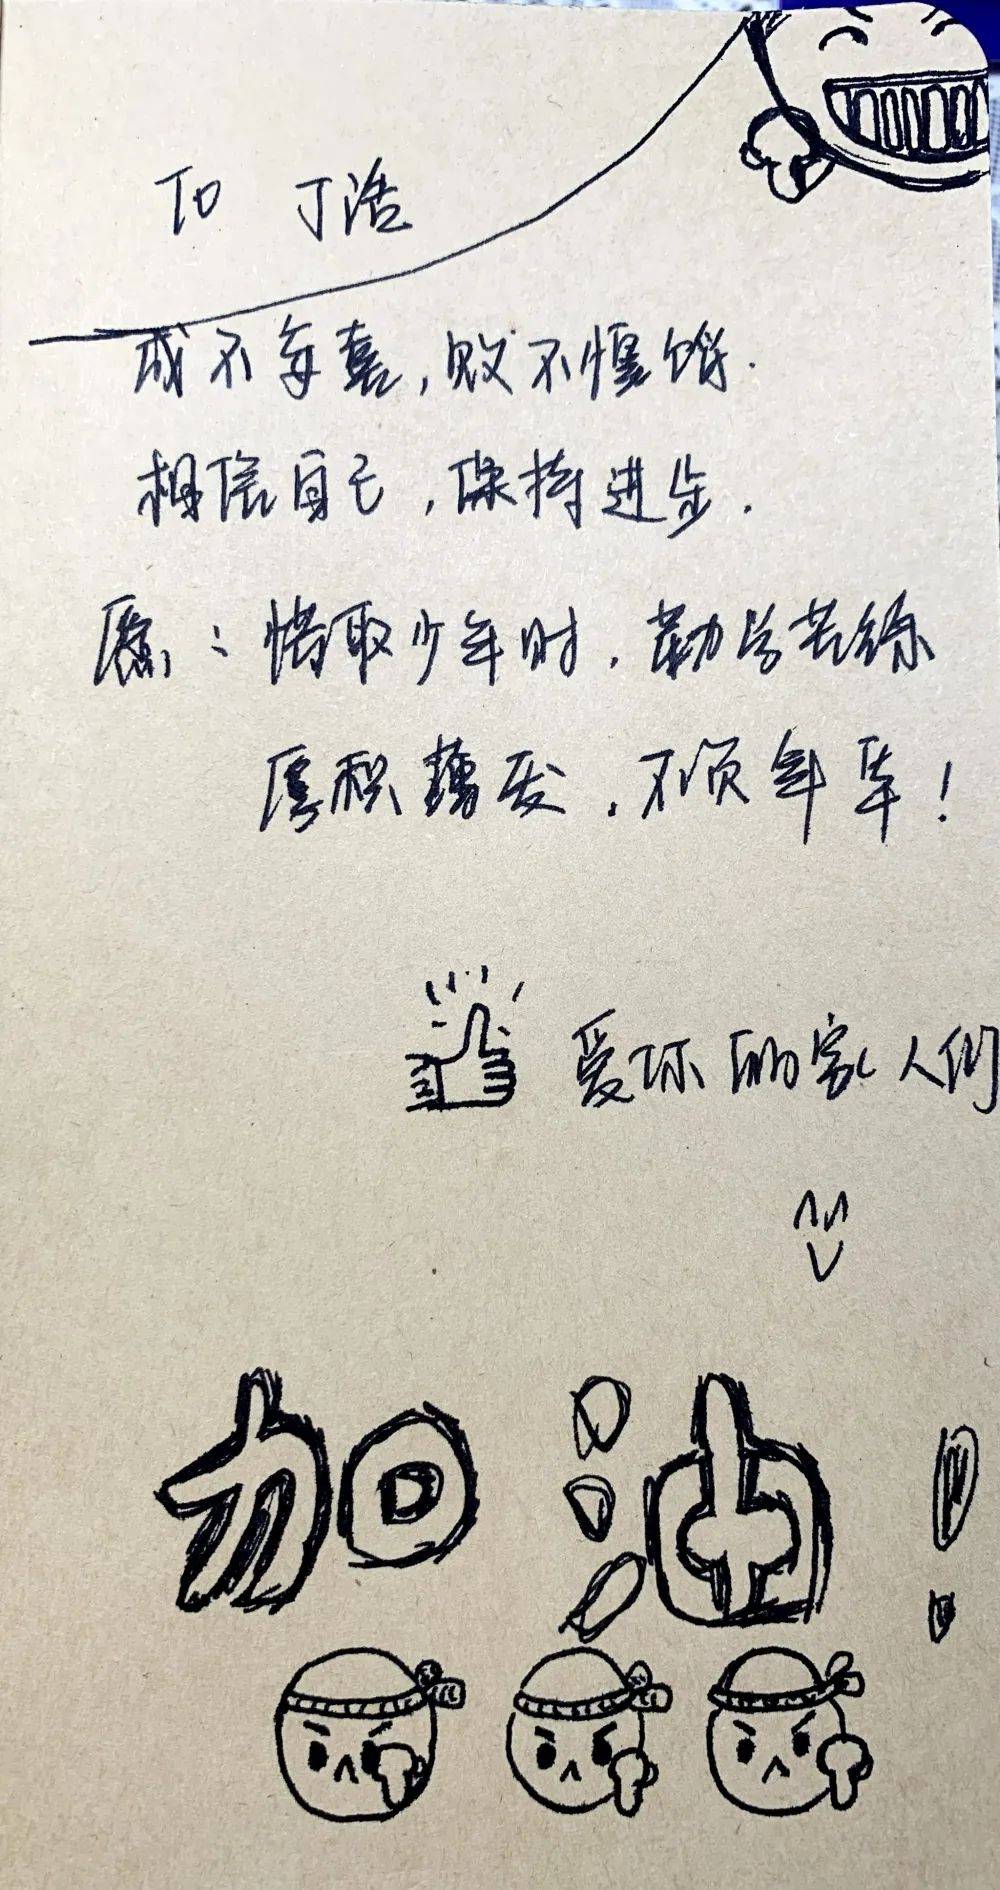 To 丁浩
成不幸喜，败不惶馁.
相信自己，保持进步.
愿：惜取少年时，勤学苦练
厚积薄发，不负年华！
爱你的家人们
加油！